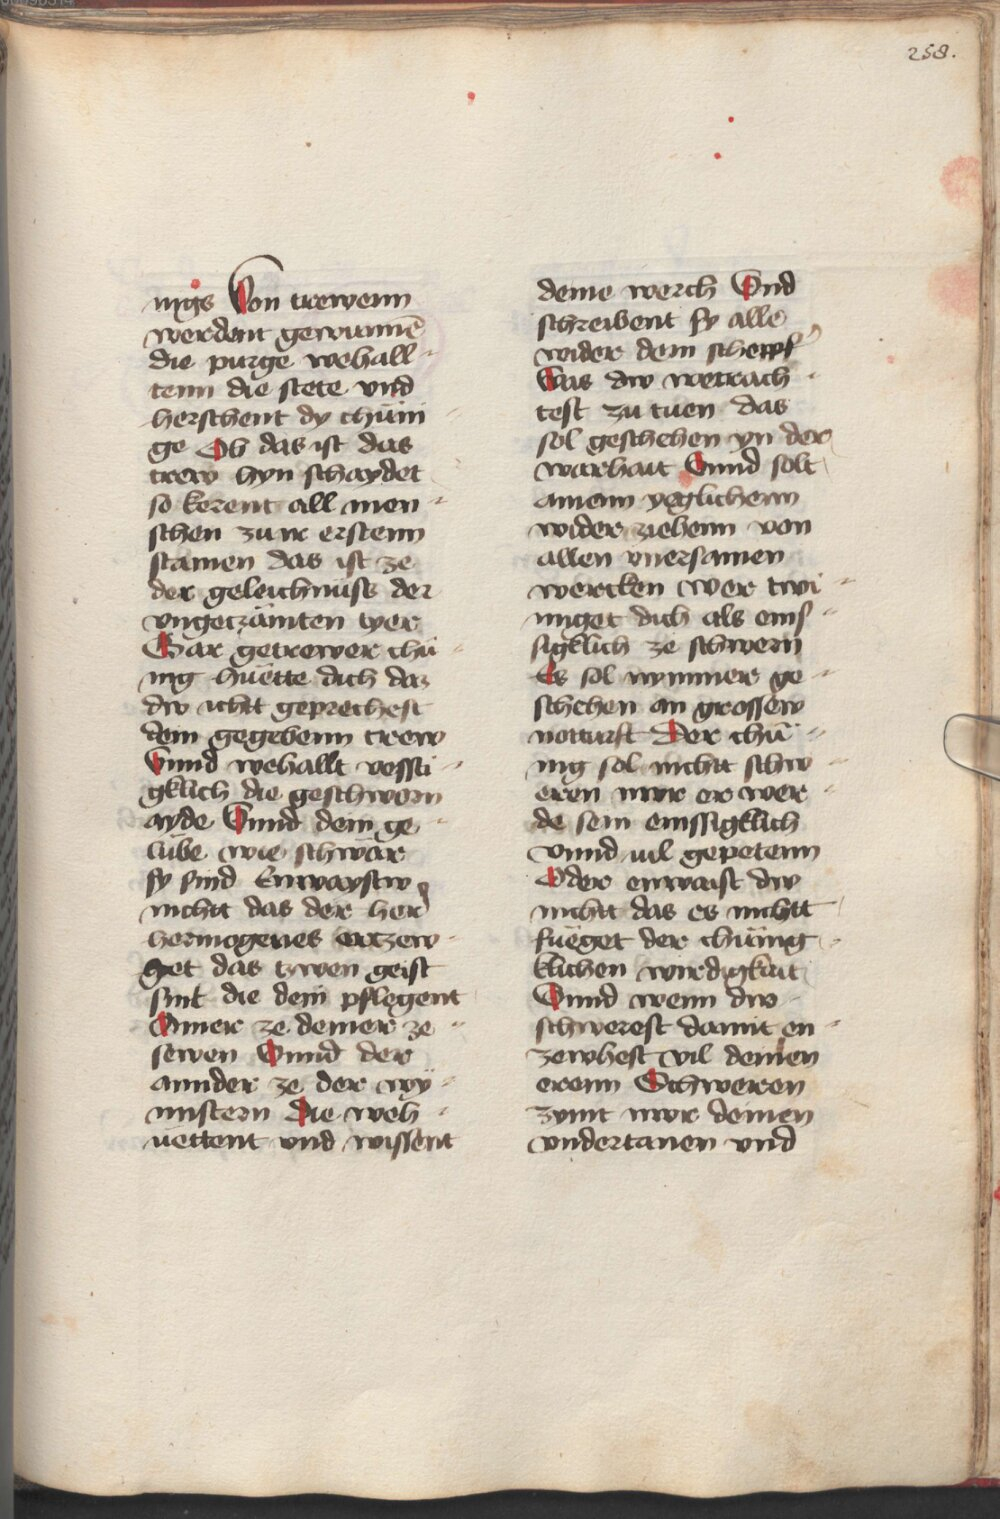 258.
nigs Von trewenn
werdent gewunnē
die purge wehall-
tenn die stete vnd
herschent dy chüni
ge Ob das ist das
trew hyn schaydet
so kerent all men-
schen zu ir erstenn
stamen das ist ze
der geleichnüss der
vngezämten tyer
Gar getrewer chü-
nig hüette dich daz
dw icht geprechest
dem gegebenn trew
Vnnd wehallt vessti-
gklich die geschworn
ayde Vnnd dem ge-
lübe wie schwär
sy sind Enwaystw
nicht das der her
hermogenes ertzew-
get das tzwen geist
sint die dein pflegent
Ainer ze deiner ze-
sewen Vnnd der
annder ze der wy-
nnstern Die weh-
uettent vnd wissent
deine werch Vnd
schreibent sy alle
wider dem schepf
Was dw wetrach-
test zu tuen das
sol geschehen yn der
warhait Vnnd solt
ainem yeglichenn
wider ziehenn von
allen vnersamen
wercken Wer twi-
nnget dich als ems-
sigklich ze schwern
Es sol nymmer ge-
schehen an grossew
notturft Der chü-
nig sol nicht schw-
eren nwr er wer-
de sein emssigklich
vnnd vil gepetenn
Oder enwaist dw
nicht das es nichtt
füeget der chünig-
klichen wirdigkait
Vnnd wenn dw
schwerest damit en-
zewhest vil deinen
erenn Schweren
zymt nwr deinen
vndertanen vnd